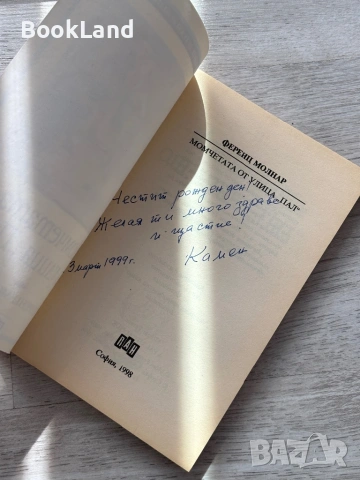 BookLand
ФЕРЕНЦ МОЛНАР
МОМЧЕТАТА ОТ УЛИЦА „ПАЛ“
Честит рожден ден!
Желая ти много здраве
и щастие!
3 март 1999 г.
Камен
ПАН
София, 1998
BAZAR